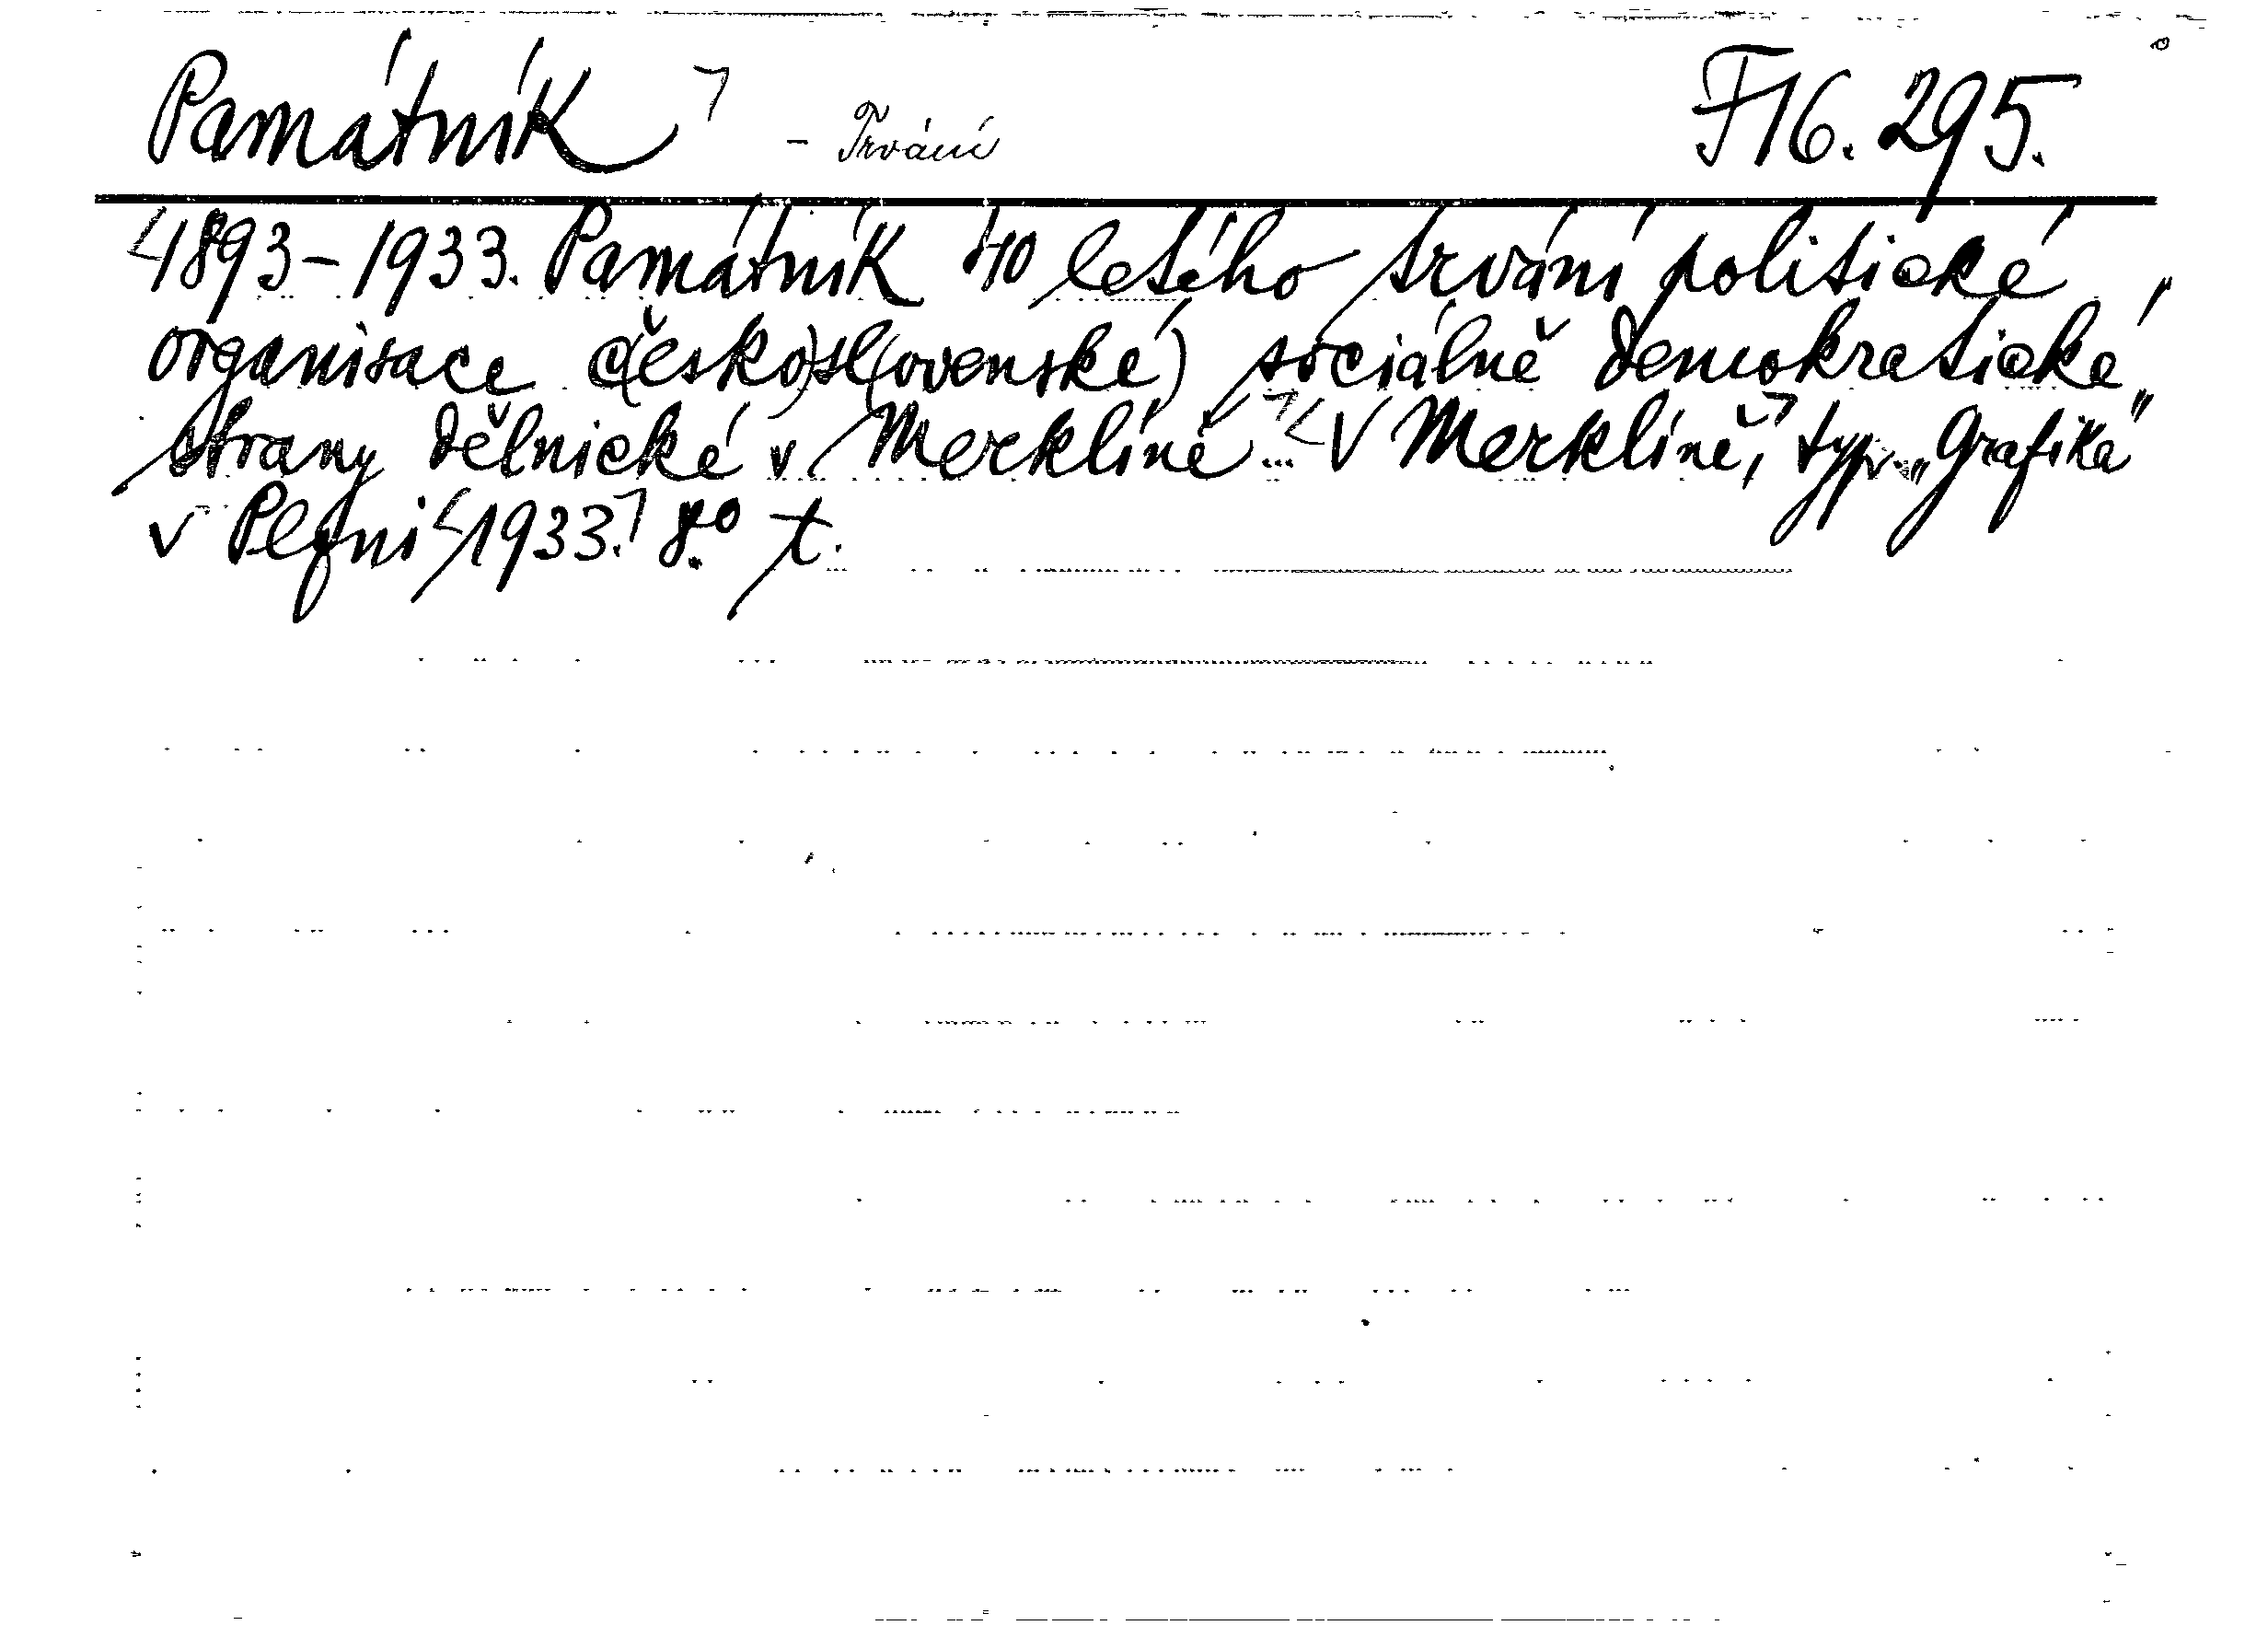 Památník - Trvání F 16. 295.
1893-1933. Památník 40 letého trvání politické
organisace č(esko)sl(ovenské) sociálně demokratické
strany dělnické v Merklíně... V Merklíně, typ. „Grafika"
v Plzni 1933. 8.° t.